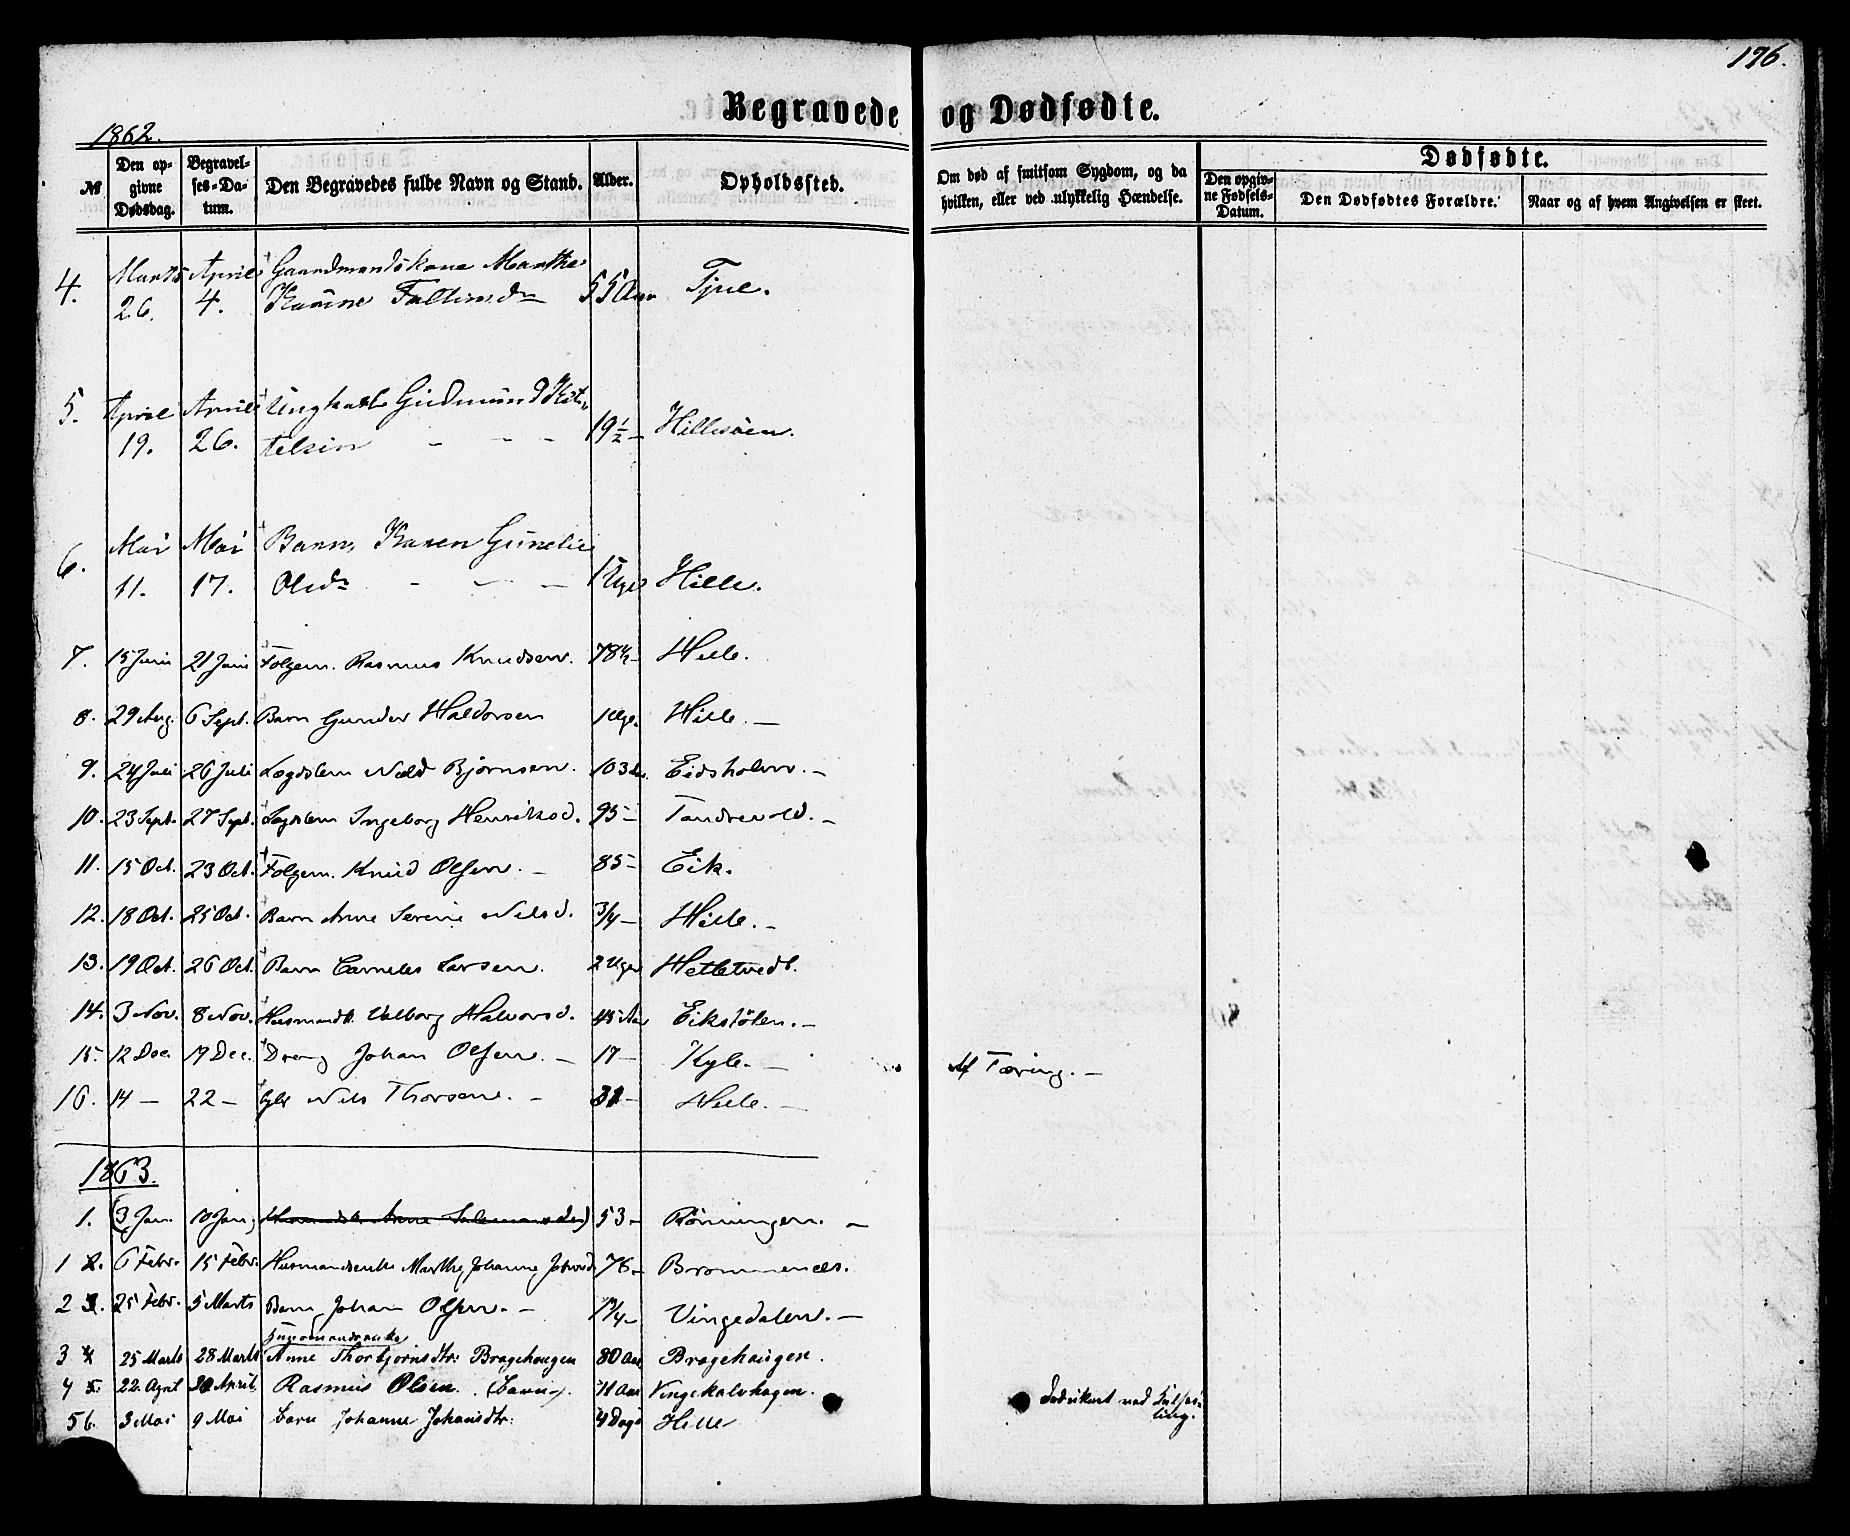 196.
Begravede og Dødfødte.
1862.
№ Den op-givne Dødsdag. Begravel-ses-Da-tum. Den Begravedes fulde Navn og Stand. Alder. Opholdssted. Om død af smitsom Sygdom, og da hvilken, eller ved ulykkelig Hændelse. Dødfødte. Den opgiv-ne Fødsels-Datum. Den Dødfødtes Forældre. Naar og af hvem Angivelsen er skeet.
4. Marts 26. April 4. Gaardmandskone Marthe 55 Aar
5. April 19. April 26. Ungkarl Gudmund Kit-
telsen - - - 19½ - Hillesøen.
6. Mai 11. Mai 17. Barn, Karen Gunelie
Olsdr - - - 1 Uge Hille.
7. 15 Juni 21 Juni Folgem. Rasmus Knudsen. 78½ - Hille.
8. 29 Aug. 6 Sept. Barn Gunder Haldorsen 1 Uge. Hille. -
9. 24 Juli 26 Juli Lægdslem Nils Bjørnsen. 103 Eidsholm. -
10. 23 Sept. 27 Sept. Lægdslem Ingeborg Henriksd. 95 - Tandrevold. -
11. 15 Oct. 23 Oct. Folgem. Knud Olsen. - 85 - Eik.
12. 18 Oct. 25 Oct. Barn Anne Serine Nilsd. 3/4 - Hille. -
13. 19 Oct. 26 Oct. Barn Carneles Larsen. 2 Uger Hetletvedt.
14. 3 Nov. 8 Nov. Husmandsk. Valborg Halvorsd. 45 Aar Eikstølen. -
15. 12 Dec. 19 Dec. Dreng Johan Olsen. - 17 - Kyle. - Af Tæring. -
16. 14 - 22 - Nils Thorsen. - 31 - Hille. -
1863.
1. (3 Jan. 10 Jan. Anne Salamonsdr) 53 - Rönningen. -
1 2. 6 Febr. 15 Febr. Husmandsenke Marthe Johanne 76 - Brommenæs.
2 3. 25 Febr. 5 Marts Barn Johan Olsen. - 1¾ - Vingedalen. -
Husmandsenke
3 4 25 Marts 28 Marts Anne Thorbjørnsdtr: Bragehaugen 80 Aar Bragehaugen.
4 5. 22. April 30 April. Rasmus Olsen. (Barn). 11 Aar Vingekalvhagen.
5 6. 3 Mai 9 Mai barn Johanne Johansdtr: 4 Dage Hille